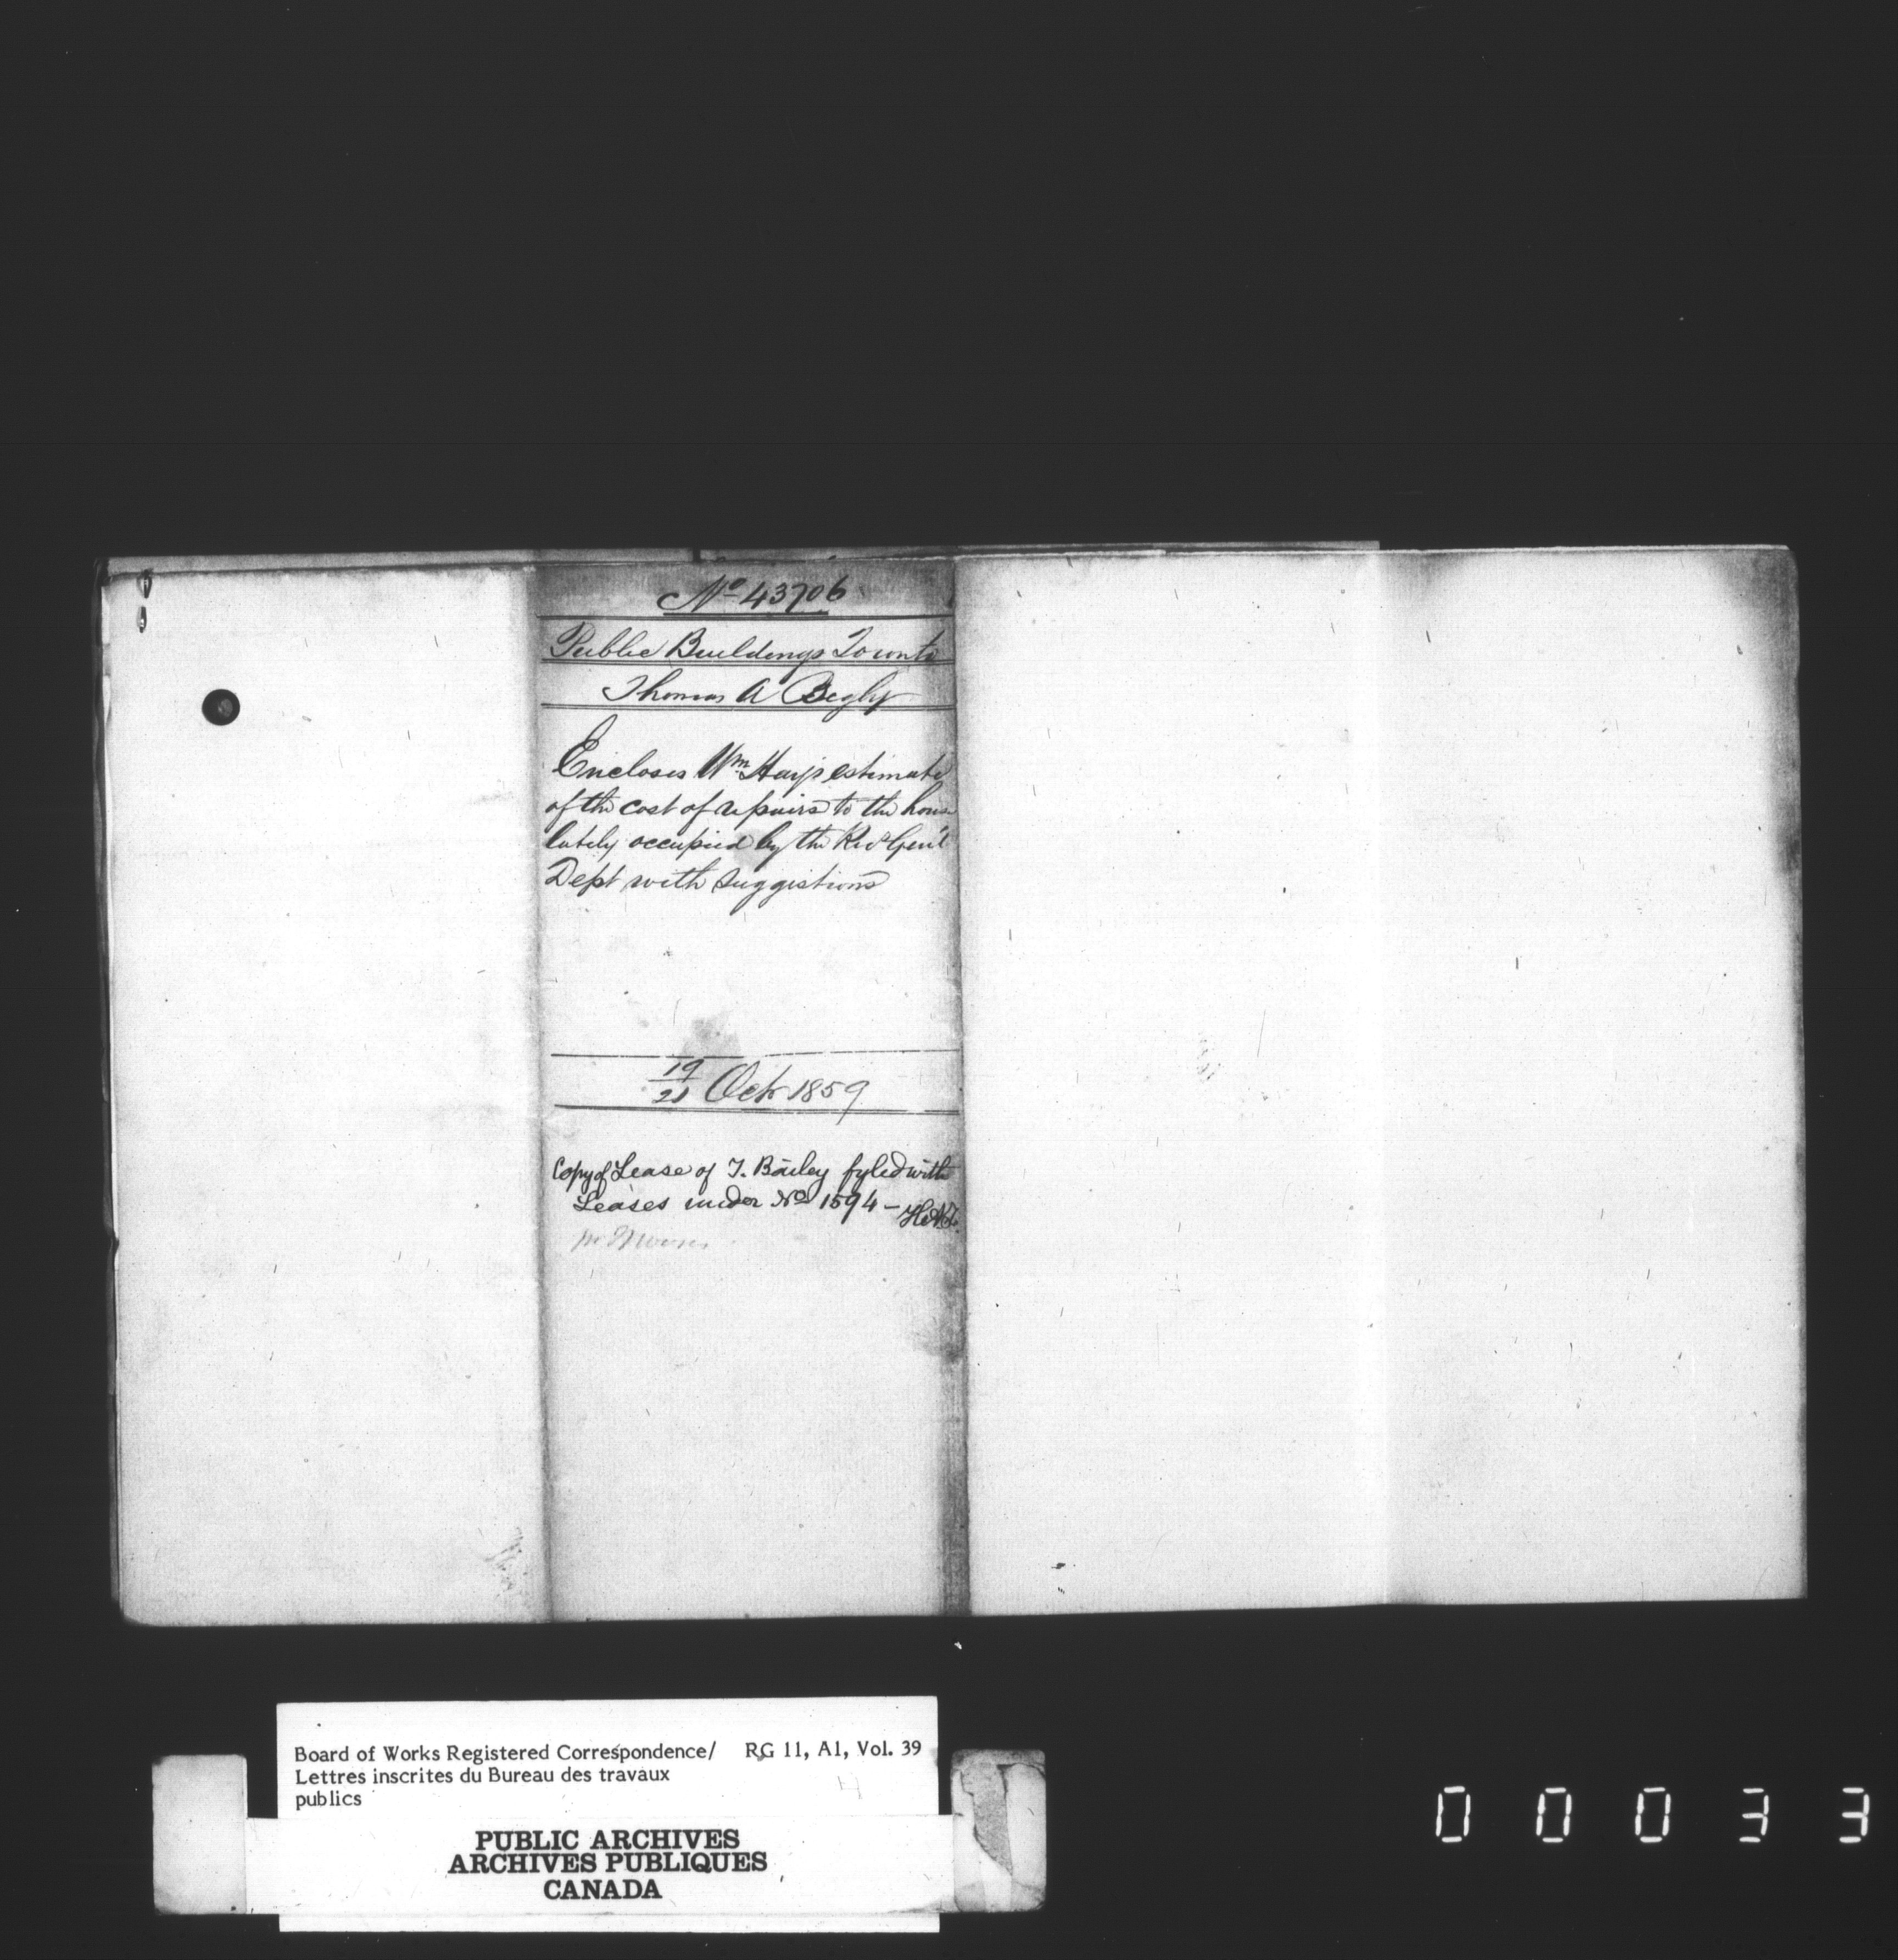 No 43706
Public Buildings Toronto
Thomas A Begly
Encloses Wm Hay's estimate
of the cost of repairs to the house
lately occupied by the Recr Genl
Dept with suggestions
19
21 Oct 1859
Copy of Lease of T. Bailey fyled with
Leases under No 1594 –
Board of Works Registered Correspondence/ RG 11, A1, Vol. 39
Lettres inscrites du Bureau des travaux
publics
PUBLIC ARCHIVES
ARCHIVES PUBLIQUES
CANADA
0 0 0 3 3